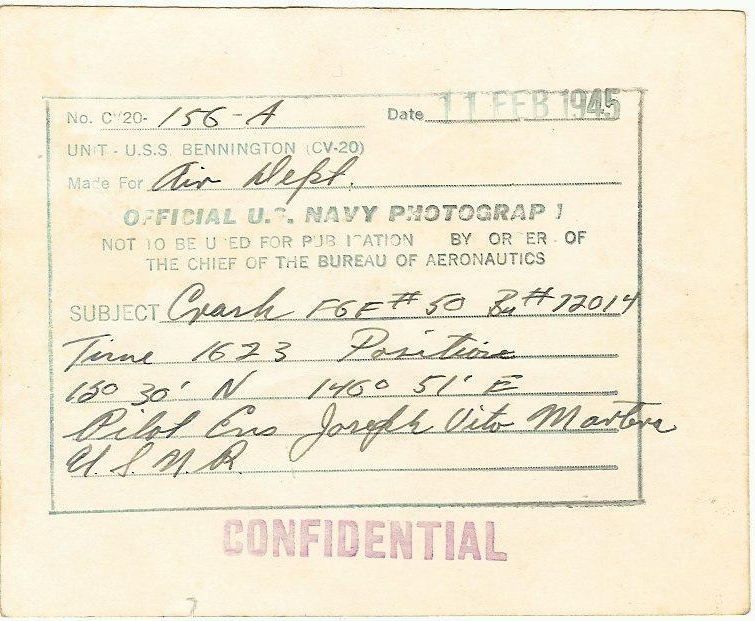 No. CV20- 156-A Date 11 FEB 1945
UNIT - U.S.S. BENNINGTON (CV-20)
Made For Air Dept.
OFFICIAL U.S. NAVY PHOTOGRAPH
NOT TO BE USED FOR PUBLICATION BY ORDER OF
THE CHIEF OF THE BUREAU OF AERONAUTICS
SUBJECT Crash F6F # 50 Bu # 72014
Time 1623 Position
15° 30' N 146° 51' E
Pilot Ens Joseph Vito
U S N R
CONFIDENTIAL